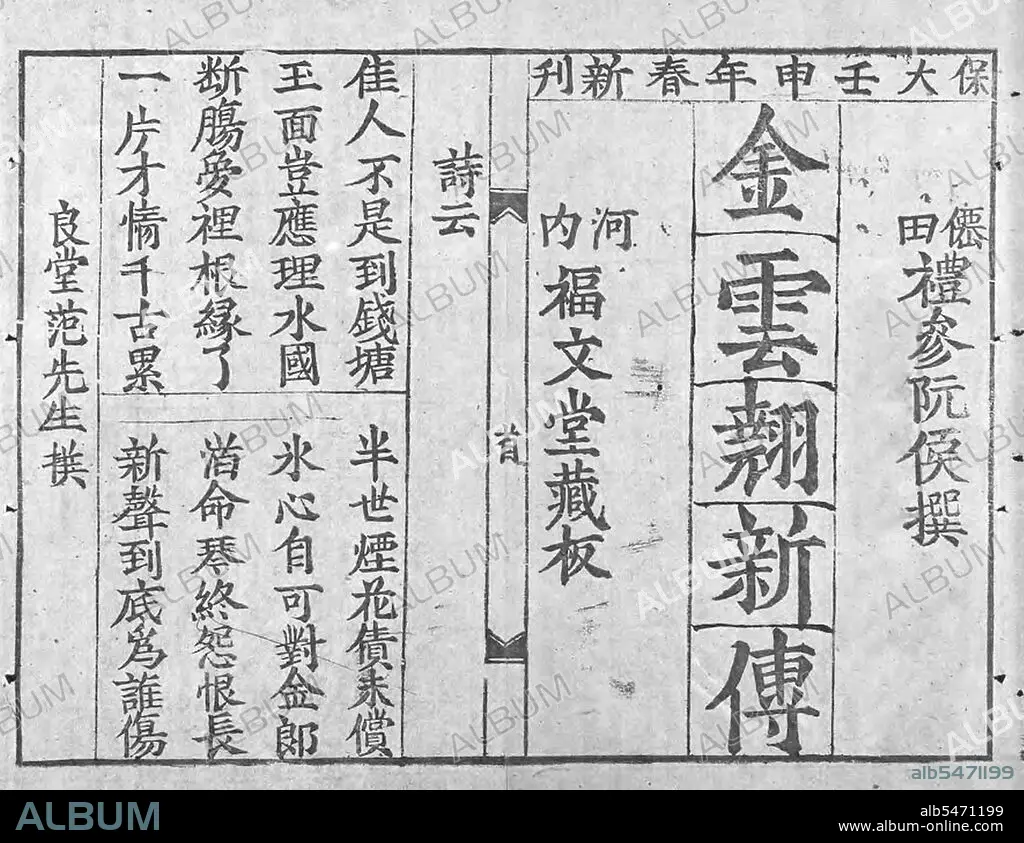 保大壬申年春新刊
僊田禮參阮侯撰
金雲翹新傳
河內福文堂藏板
首
詩云
佳人不是到錢塘
半世煙花債未償
玉面豈應理水國
氷心自可對金郎
断膓夢裡根縁了
命琴終怨恨長
一片才情千古累
新聲到底爲誰傷
良堂范先生撰
alb5471199
ALBUM
alb5471199
www.album-online.com